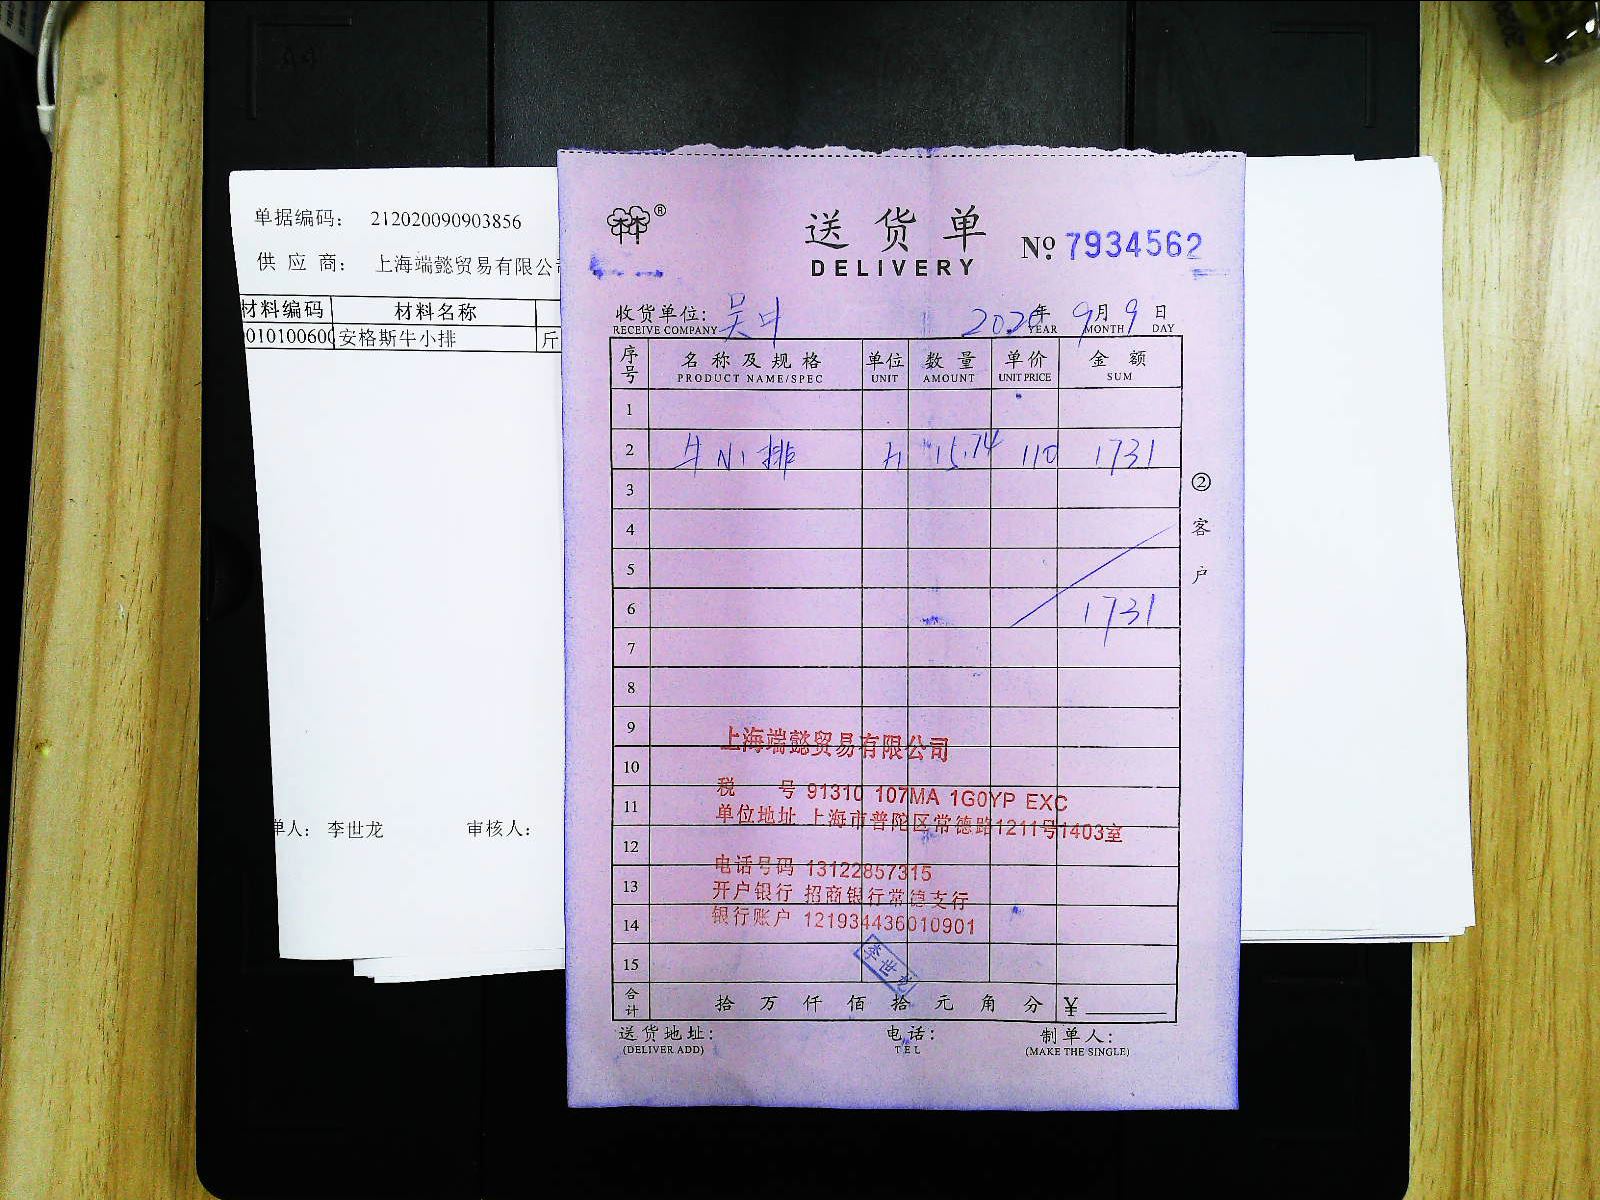 单据编码： 212020090903856
供 应 商： 上海端懿贸易有限公
材料编码 材料名称
010100600 安格斯牛小排 斤
单人： 李世龙 审核人：
®
送货单
DELIVERY
№ 7934562
收货单位: 吴中 2020年 9月 9日
RECEIVE COMPANY YEAR MONTH DAY
序号 名称及规格 单位 数量 单价 金额
PRODUCT NAME/SPEC UNIT AMOUNT UNIT PRICE SUM
1
2 牛小排 斤 15.74 110 1731
3
4
5
6 1731
7
8
9
10
11
12
13
14
15
②客户
上海端懿贸易有限公司
税 号 91310 107MA 1G0YP EXC
单位地址 上海市普陀区常德路1211号1403室
电话号码 13122857315
开户银行 招商银行常德支行
银行账户 121934436010901
李世龙
合计 拾 万 仟 佰 拾 元 角 分 ¥
送货地址: 电话: 制单人:
(DELIVER ADD) TEL (MAKE THE SINGLE)